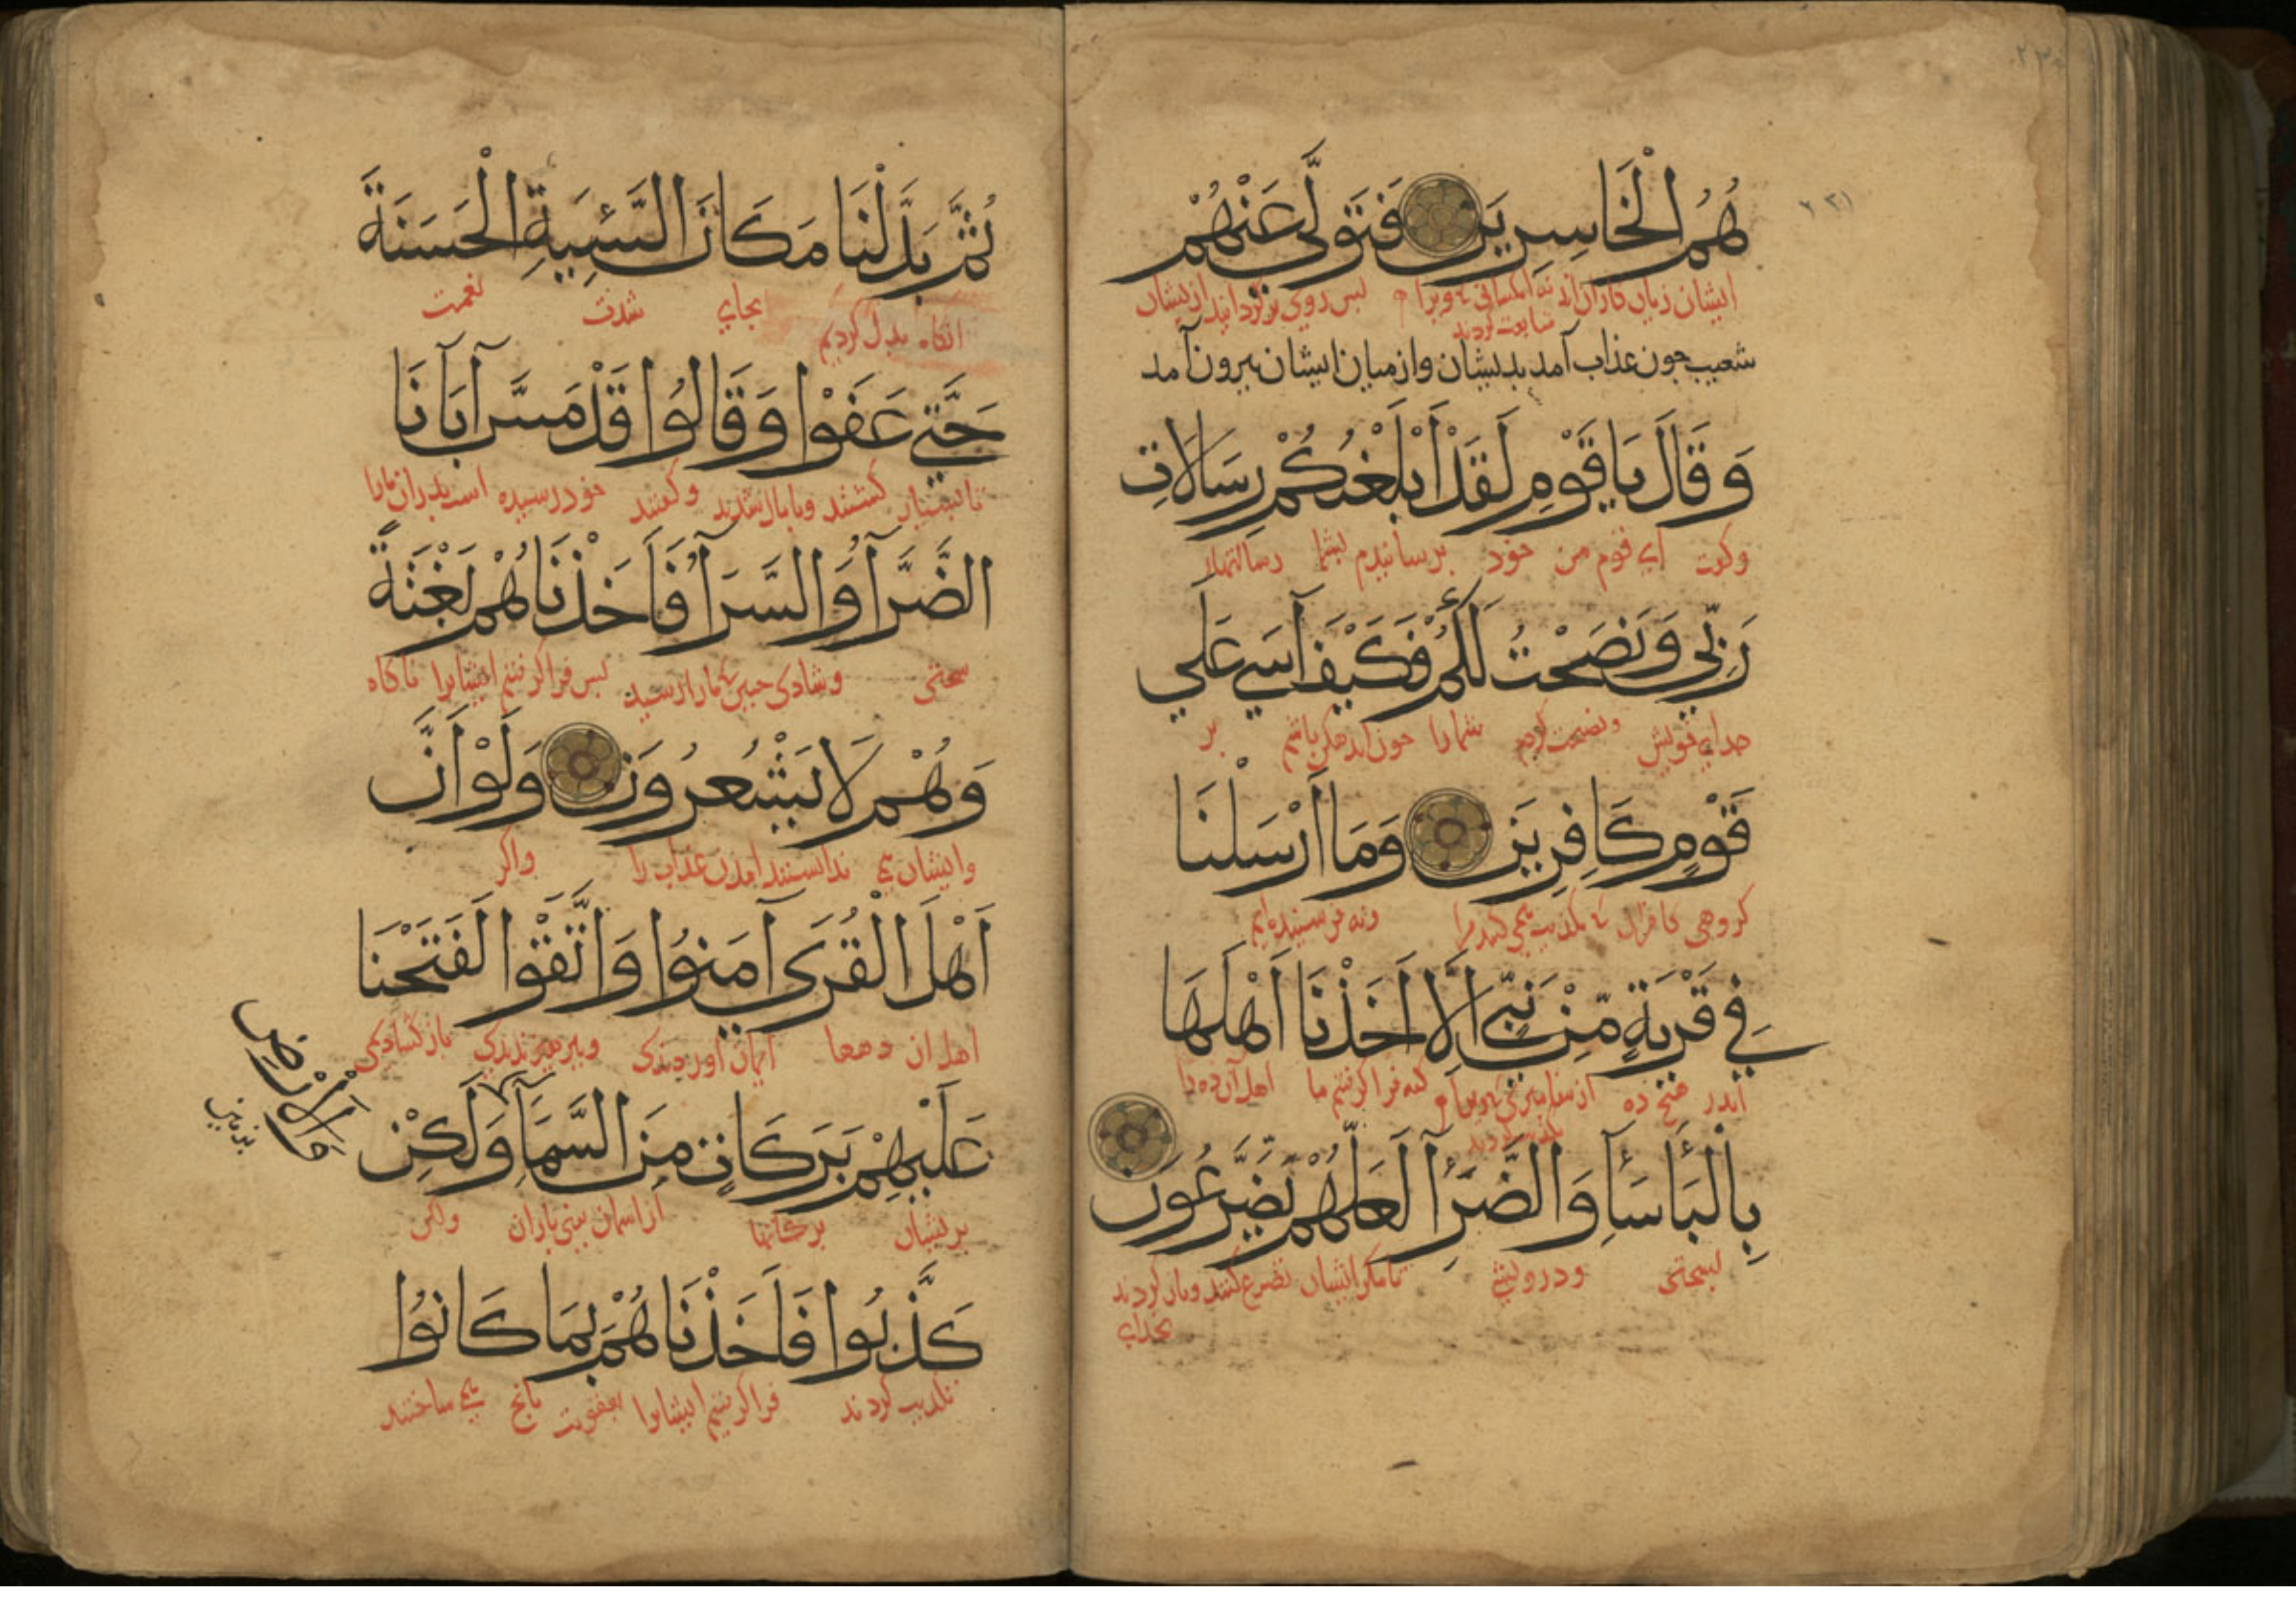 هُمُ الْخَاسِرِينَ فَتَوَلَّى عَنْهُمْ
ایشان زیان کاران اند پس روی برگردانید از یشان
شعیب چون عذاب آمد بدیشان و از میان ایشان بیرون آمد
وَقَالَ يَا قَوْمِ لَقَدْ أَبْلَغْتُكُمْ رِسَالَاتِ
وکفت ای قوم من خود برسانیدم بشما رسالتهاء
رَبِّي وَنَصَحْتُ لَكُمْ فَكَيْفَ آسَى عَلَى
خدای خویش ونصیحت کردم شما را چون اندهکن باشم بر
قَوْمٍ كَافِرِينَ وَمَا أَرْسَلْنَا
کروهی کافران ونه فرستیده ایم
فِي قَرْيَةٍ مِّنْ نَبِيٍّ إِلَّا أَخَذْنَا أَهْلَهَا
اندر هیچ ده کنه فرا کرفتیم ما اهل آن ده را
بِالْبَأْسَاءِ وَالضَّرَّاءِ لَعَلَّهُمْ يَضَّرَّعُونَ
بسختی ودرویشی تا مکر ایشان تضرع کنند وباز کردند
بخدای
ثُمَّ بَدَّلْنَا مَكَانَ السَّيِّئَةِ الْحَسَنَةَ
انکاه بدل کردیم بجای شدت نعمت
حَتَّى عَفَوْا وَقَالُوا قَدْ مَسَّ آبَانَا
وکفتند خود رسیده است بدران مارا
الضَّرَّآءُ وَالسَّرَآءُ فَأَخَذْنَاهُمْ بَغْتَةً
سختی وشادی مارا رسید بس فرا کرفتیم ایشانرا ناکاه
وَهُمْ لَا يَشْعُرُونَ وَلَوْ أَنَّ
وایشان می ندانستند امدن عذاب را واکر
أَهْلَ الْقُرَى آمَنُوا وَاتَّقَوْا لَفَتَحْنَا
اهل ان دهها ایمان اوردندی وبرهیزیدندی باز کشادیمی
عَلَيْهِمْ بَرَكَاتٍ مِنَ السَّمَآءِ وَلَكِنْ
وَالْأَرْضِ
بریشان برکاتها از اسمان یعنی باران ولکن
كَذَّبُوا فَأَخَذْنَاهُمْ بِمَا كَانُوا
تکذیب کردند فرا کرفتیم ایشانرا بعقوبت بانچ می ساختند